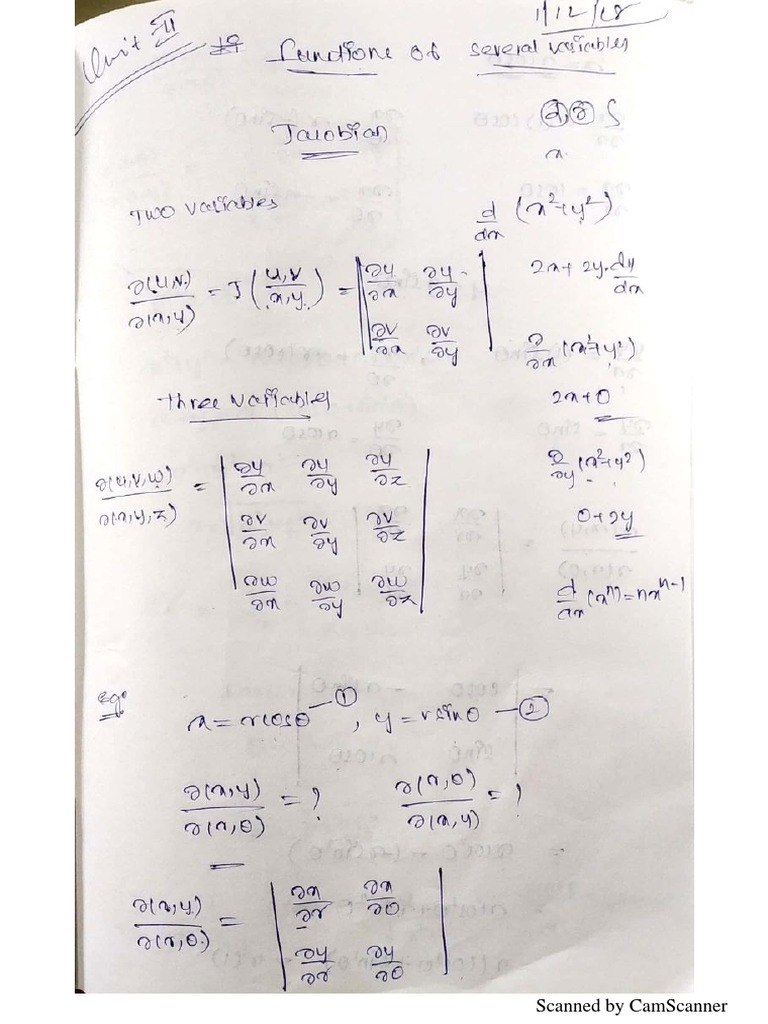 Unit II
1/12/18
Functions of several variables
Jacobian
d, ∂ S
x.
Two variables
d/dx (x²+y²)
∂(u,v)/∂(x,y) = J (u,v/x,y) = | ∂u/∂x ∂u/∂y |
| ∂v/∂x ∂v/∂y |
2x + 2y. dy/dx
∂/∂x (x²+y²)
2x+0
Three variables
∂(u,v,w)/∂(x,y,z) = | ∂u/∂x ∂u/∂y ∂u/∂z |
| ∂v/∂x ∂v/∂y ∂v/∂z |
| ∂w/∂x ∂w/∂y ∂w/∂z |
∂/∂y (x²+y²)
0+2y
d/dx (xⁿ) = nxⁿ⁻¹
Eg:
x = r cosθ —①, y = r sinθ —②
∂(x,y)/∂(r,θ) = ? ∂(r,θ)/∂(x,y) = ?
∂(x,y)/∂(r,θ) = | ∂x/∂r ∂x/∂θ |
| ∂y/∂r ∂y/∂θ |
Scanned by CamScanner